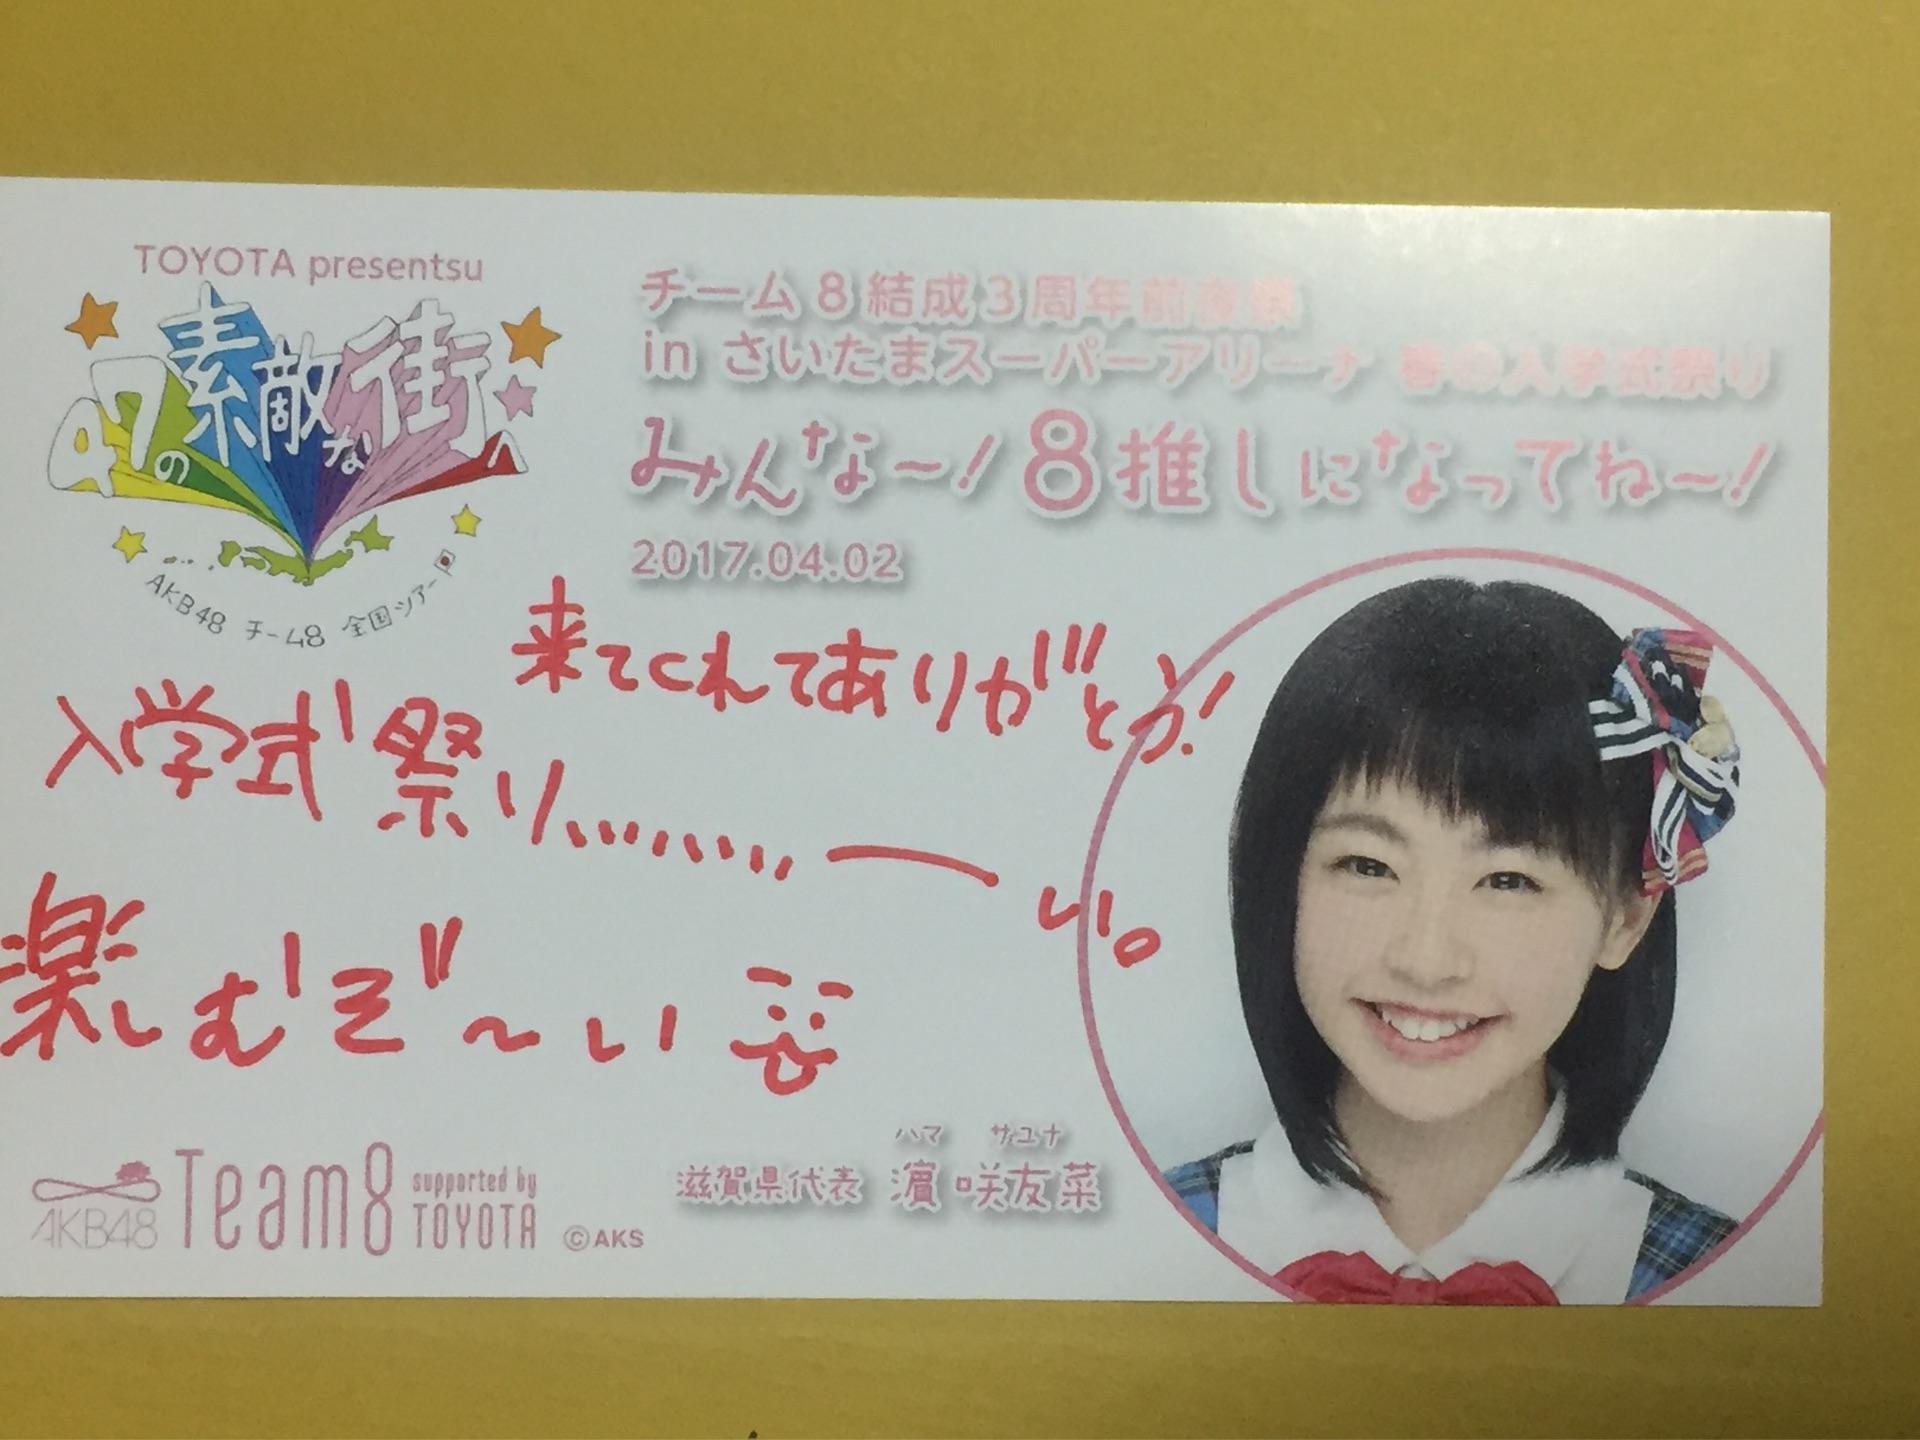 TOYOTA presentsu
47の素敵な街へ
AKB48 チーム8 全国ツアー
チーム8結成3周年前夜祭
in さいたまスーパーアリーナ 春の入学式祭り
みんな〜！8推しになってね〜！
2017.04.02
来てくれてありがとう！
入学式祭り、、、、、、、、、ーい。
楽しむぞ〜い
AKB48 Team8 supported by TOYOTA
©AKS
ハマ サユナ
滋賀県代表 濵 咲友菜